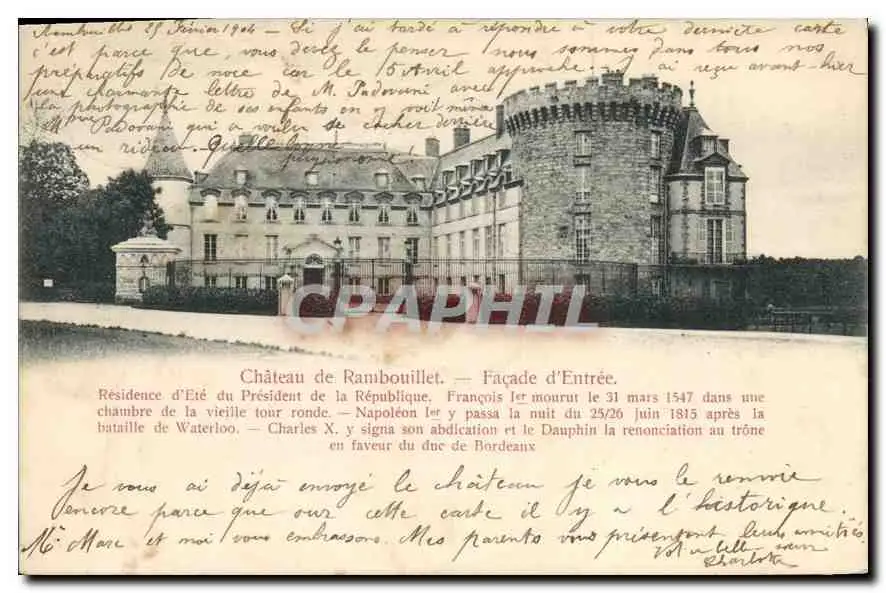 Rambouillet 25 Février 1904 — Si j'ai tardé à répondre à votre dernière carte
c'est parce que, vous devez le penser nous sommes dans tous nos
préparatifs de noce car le 5 Avril approche. J'ai reçu avant-hier
une charmante lettre de M. Padovani avec
la photographie de ses enfants on y voit même
Mme Padovani qui a voulu se cacher derrière
un rideau. Quelle longue
Château de Rambouillet. — Façade d'Entrée.
Résidence d'Eté du Président de la République. François Ier mourut le 31 mars 1547 dans une
chambre de la vieille tour ronde. — Napoléon Ier y passa la nuit du 25/26 Juin 1815 après la
bataille de Waterloo. — Charles X. y signa son abdication et le Dauphin la renonciation au trône
en faveur du duc de Bordeaux
CPAPHIL
Je vous ai déjà envoyé le château je vous le renvoie
encore parce que sur cette carte il y a l'historique.
Mr Marc et moi vous embrassons. Mes parents vous présentent leurs amitiés.
Charlotte